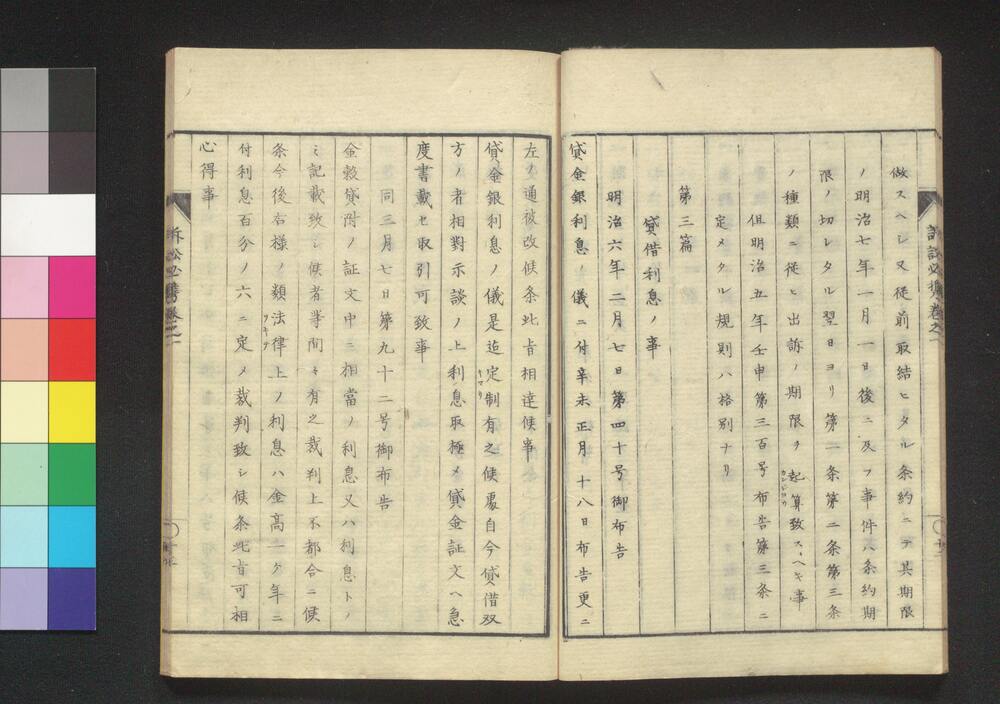 做スヘシ又従前取結ヒタル条約ニテ其期限
ノ明治七年一月一日後ニ及フ事件ハ条約期
限ノ切レタル翌日ヨリ第一条第二条第三条
ノ種類ニ従ヒ出訴ノ期限ヲ起算致スヘキ事
但明治五年壬申第三百号布告第三条ニ
定メタル規則ハ格別ナリ
第三篇
貸借利息ノ事
明治六年二月七日第四十号御布告
貸金銀利息ノ儀ニ付辛未正月十八日布告更ニ
左ノ通被改候条此旨相達候事
貸金銀利息ノ儀是迄定制有之候処自今貸借双
キマリ
方ノ者相對示談ノ上利息取極メ貸金証文ヘ急
度書載セ取引可致事
同三月七日第九十二号御布告
金穀貸附ノ証文中ニ相當ノ利息又ハ利息トノ
ミ記載致シ候者等間々有之裁判上不都合ニ候
条今後右様ノ類法律上ノ利息ハ金高一ケ年ニ
付利息百分ノ六ニ定メ裁判致シ候条此旨可相
心得事